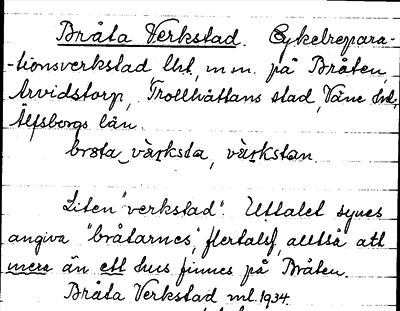 Bråta Verkstad. Cykelrepara-
-tionsverkstad lht, m m. på Bråten,
Arvidstorp, Trollhättans stad, Väne hd,
Älfsborgs län.
brøta væṛksta, væṛkstan.
Liten "verkstad". Uttalet synes
angiva "bråtarnes", flertalsf, alltså att
mera än ett hus finnes på Bråten.
Bråta Verkstad ml. 1934.